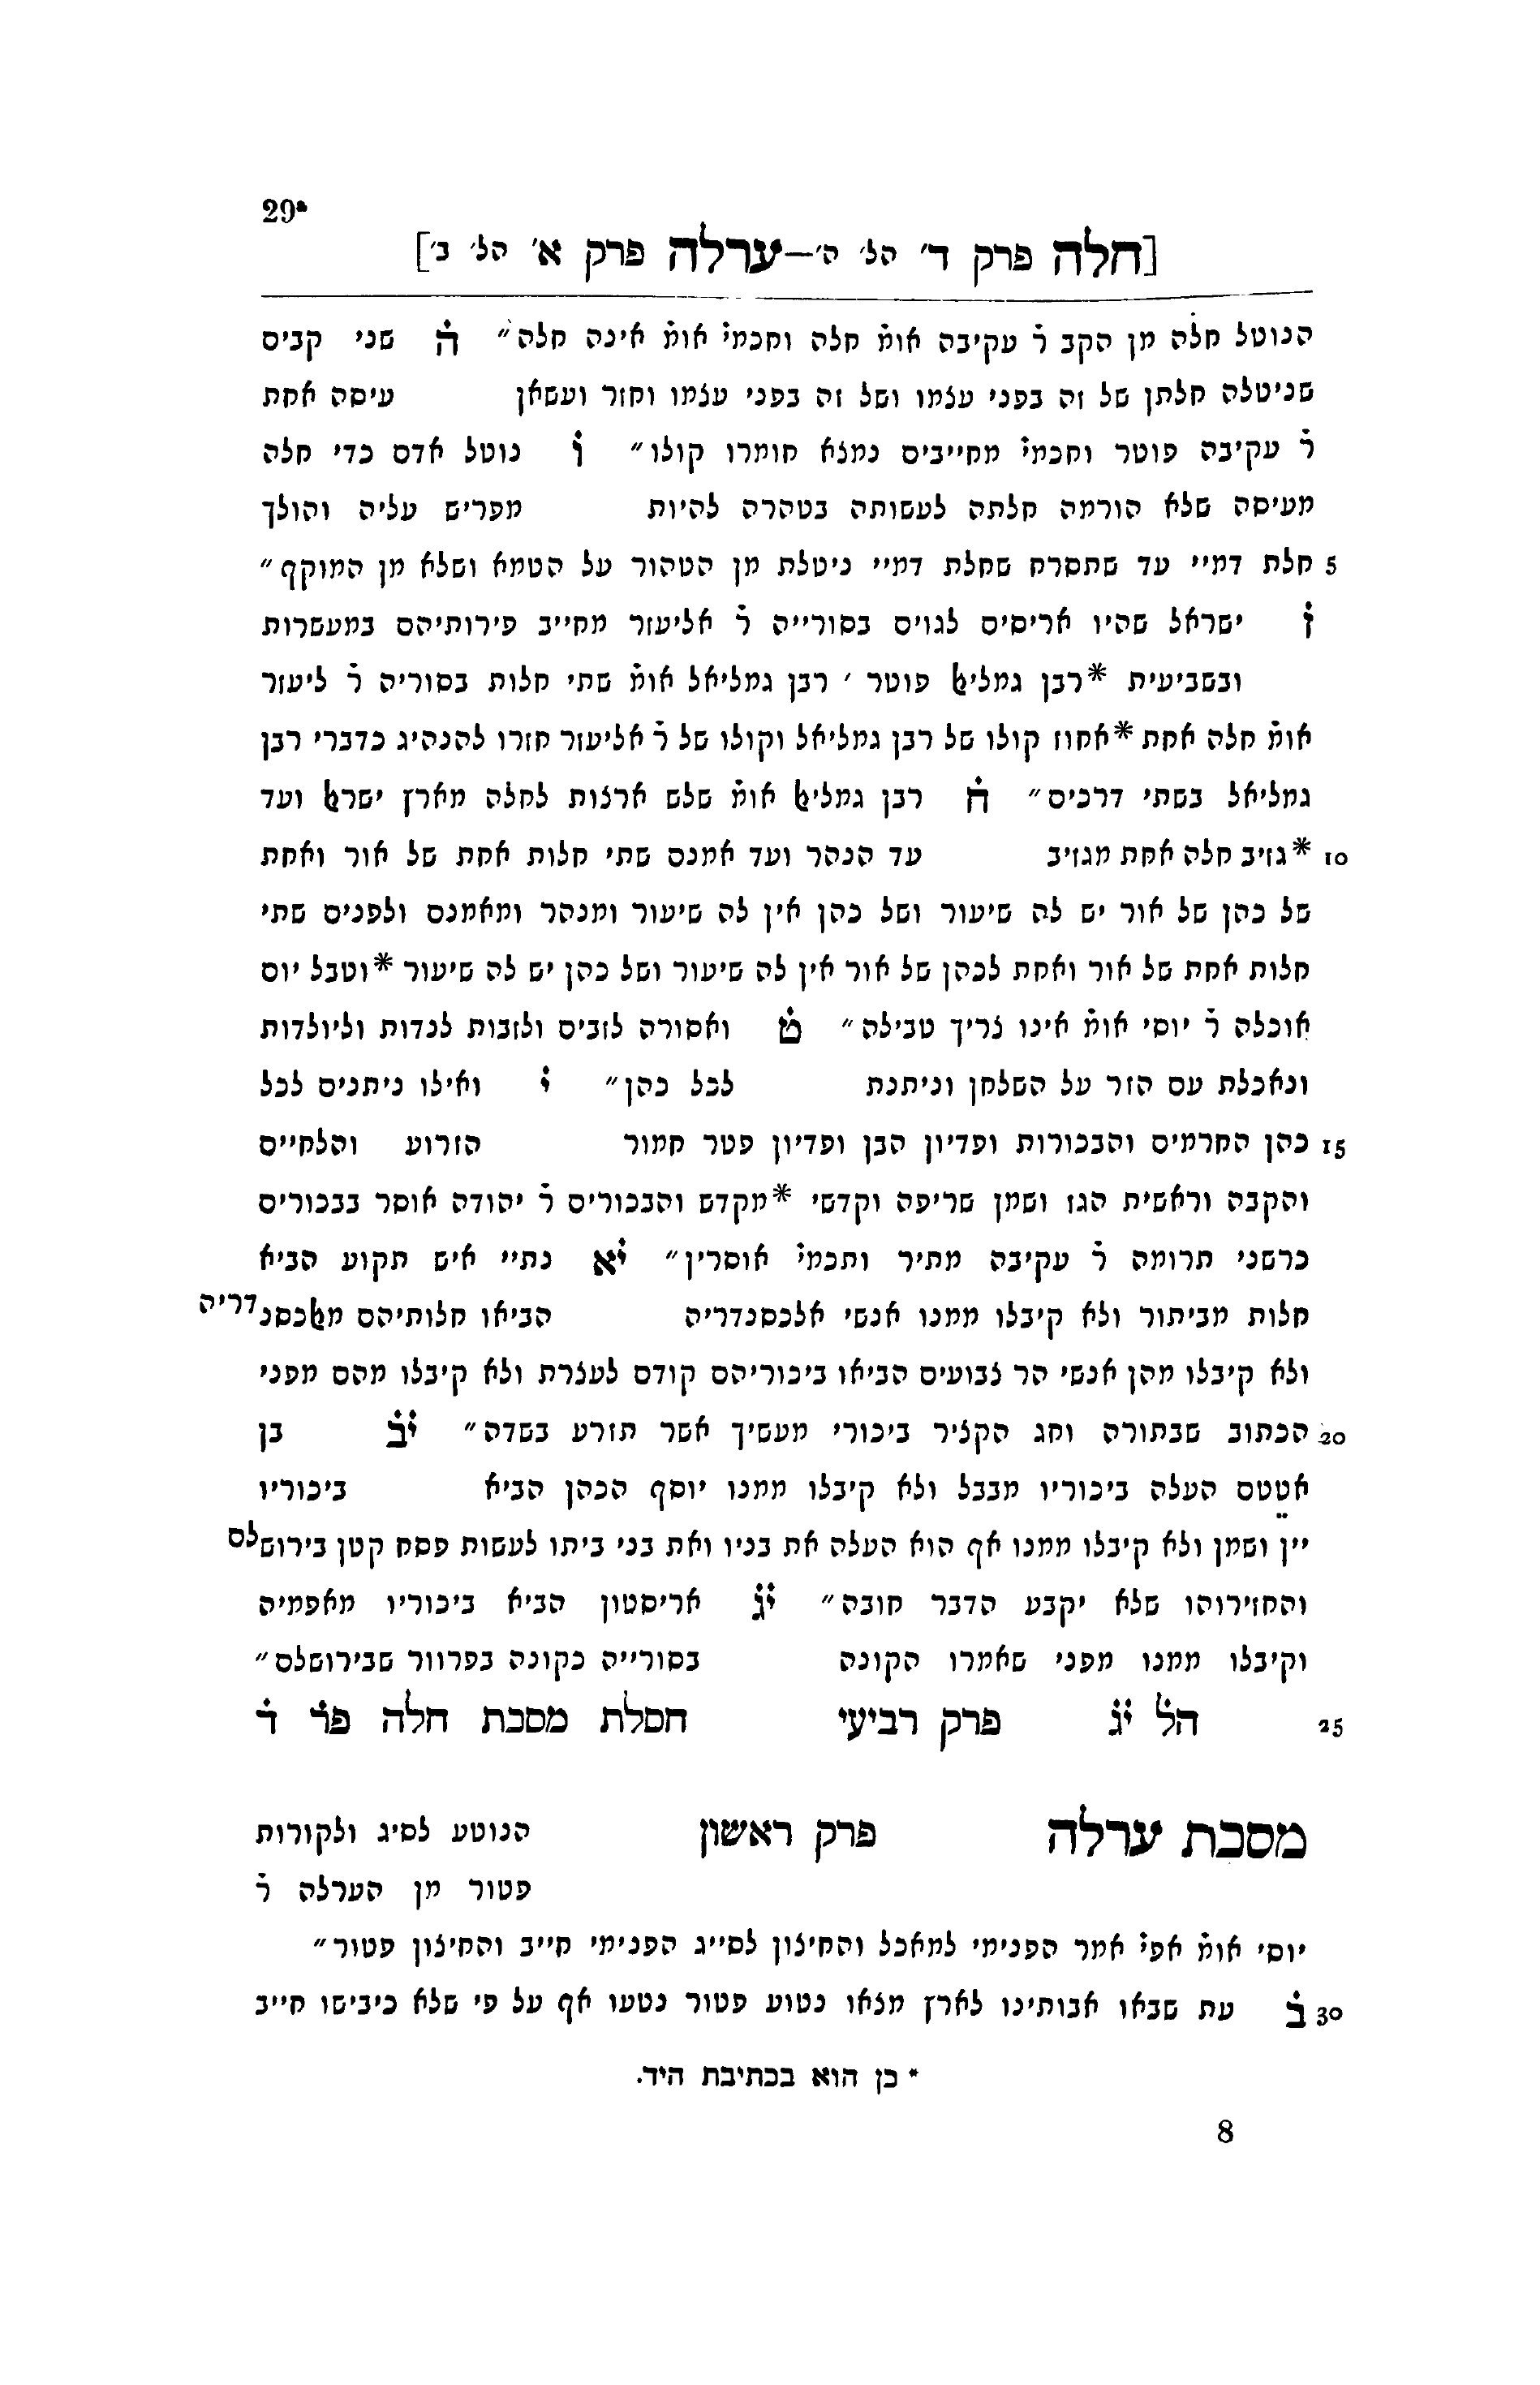 29a
[חלה פרק ד' הל' ה'—ערלה פרק א' הל' ב']
הנוטל חלה מן הקב ר̇ עקיבה אומ̇ חלה וחכמי̇ אומ̇ אינה חלה״ ה̇ שני קבים
שניטלה חלתן של זה בפני עצמו ושל זה בפני עצמו וחזר ועשאן עיסה אחת
ר̇ עקיבה פוטר וחכמי̇ מחייבים נמצא חומרו קולו״ ו̇ נוטל אדם כדי חלה
מעיסה שלא הורמה חלתה לעשותה בטהרה להיות מפריש עליה והולך
5 חלת דמיי עד שתסרח שחלת דמיי ניטלת מן הטהור על הטמא ושלא מן המוקף״
ז̇ ישראל שהיו אריסים לגוים בסורייה ר̇ אליעזר מחייב פירותיהם במעשרות
ובשביעית *רבן גמליאל פוטר ׳ רבן גמליאל אומ̇ שתי חלות בסוריה ר̇ ליעזר
אומ̇ חלה אחת *אחוז קולו של רבן גמליאל וקולו של ר̇ אליעזר חזרו להנהיג כדברי רבן
גמליאל בשתי דרכים״ ח̇ רבן גמליאל אומ̇ שלש ארצות לחלה מארץ ישראל ועד
10 *גזיב חלה אחת מגזיב עד הנהר ועד אמנס שתי חלות אחת של אור ואחת
של כהן של אור יש לה שיעור ושל כהן אין לה שיעור ומנהר ומאמנס ולפנים שתי
חלות אחת של אור ואחת לכהן של אור אין לה שיעור ושל כהן יש לה שיעור *וטבל יום
אוכלה ר̇ יוסי אומ̇ אינו צריך טבילה״ ט̇ ואסורה לזבים ולזבות לנדות וליולדות
ונאכלת עם הזר על השלחן וניתנת לכל כהן״ י̇ ואילו ניתנים לכל
15 כהן החרמים והבכורות ופדיון הבן ופדיון פטר חמור הזרוע והלחיים
והקבה וראשית הגז ושמן שריפה וקדשי *מקדש והבכורים ר̇ יהודה אוסר בבכורים
כרשני תרומה ר̇ עקיבה מתיר וחכמי̇ אוסרין״ י̇א נתיי איש תקוע הביא
חלות מביתור ולא קיבלו ממנו אנשי אלכסנדריה הביאו חלותיהם מאלכסנדריה
ולא קיבלו מהן אנשי הר צבועים הביאו ביכוריהם קודם לעצרת ולא קיבלו מהם מפני
20 הכתוב שבתורה וחג הקציר ביכורי מעשיך אשר תזרע בשדה״ י̇ב̇ בן
אטטס העלה ביכוריו מבבל ולא קיבלו ממנו יוסף הכהן הביא ביכוריו
יין ושמן ולא קיבלו ממנו אף הוא העלה את בניו ואת בני ביתו לעשות פסח קטן בירושלם
והחזירוהו שלא יקבע הדבר חובה״ י̇ג̇ אריסטון הביא ביכוריו מאפמיה
וקיבלו ממנו מפני שאמרו הקונה בסורייה כקונה בפרוור שבירושלם״
25 הל̇ י̇ג̇ פרק רביעי חסלת מסכת חלה פר̇ ד̇
מסכת ערלה פרק ראשון הנוטע לסיג ולקורות
פטור מן הערלה ר̇
יוסי אומ̇ אפי̇ אמר הפנימי למאכל והחיצון לסייג הפנימי חייב והחיצון פטור״
30 ב̇ עת שבאו אבותינו לארץ מצאו נטוע פטור נטעו אף על פי שלא כיבישו חייב
* כן הוא בכתיבת היד.
8